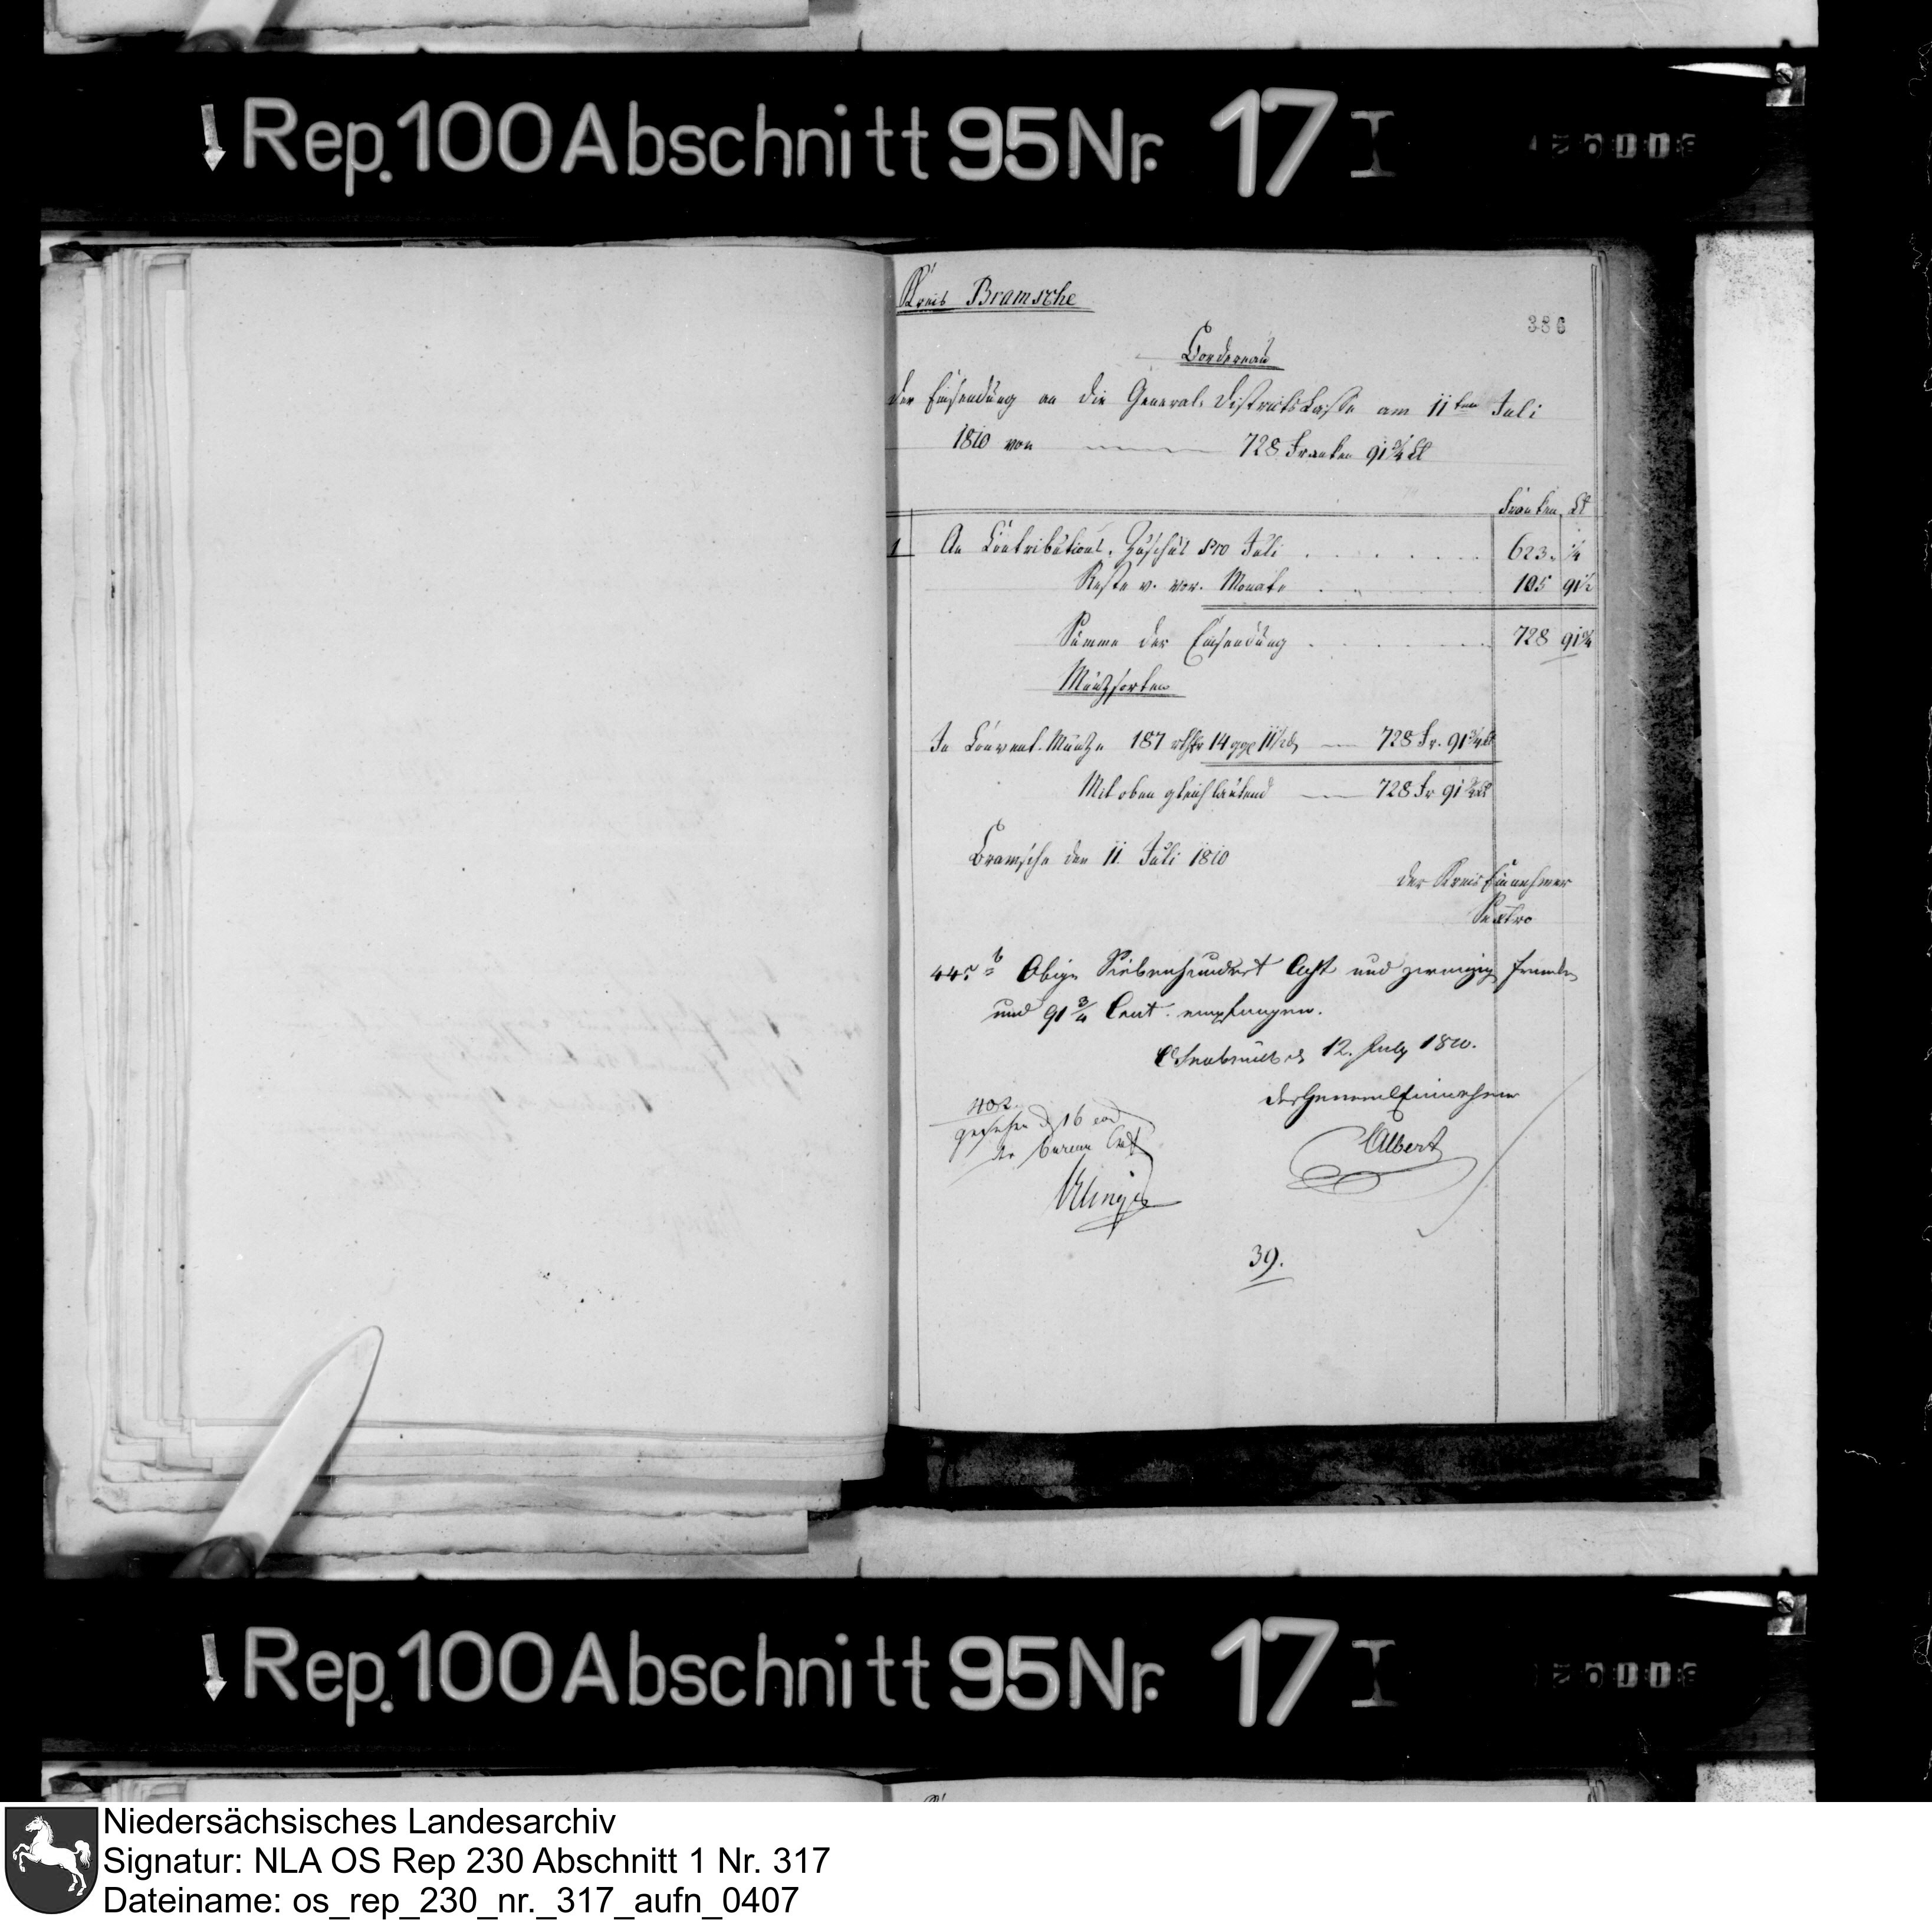 Rep. 100 Abschnitt 95 Nr. 17 I
Kreis Bramsche
386
Bordereau
der Einsendung an die General-DistrictsKasse am 11ten Juli
1810 von 728 Franken 91 3/4 Ct
Franken Ct
1 An Contributions-Zuschus pro Juli 623 1/4
Reste v. vor. Monate 105 91 1/2
Summe der Einsendung 728 91 3/4
Müntzsorten
In Convent. Müntze 187 rthlr 14 ggr 11 1/2 d 728 Fr. 91 3/4 Ct
Mit oben gleichlautend 728 Fr 91 3/4 Ct
Bramsche den 11 Juli 1810
der Kreis Einnehmer
Sextro
Obige Siebenhundert Acht und zwanzig Franken
und 91 3/4 Cent. empfangen.
Osnabrück d 12. July 1810.
der General Einnehmer
Albert
gesehen d 16
der Bureau Chef
39.
Rep. 100 Abschnitt 95 Nr. 17 I
Niedersächsisches Landesarchiv
Signatur: NLA OS Rep 230 Abschnitt 1 Nr. 317
Dateiname: os_rep_230_nr._317_aufn_0407